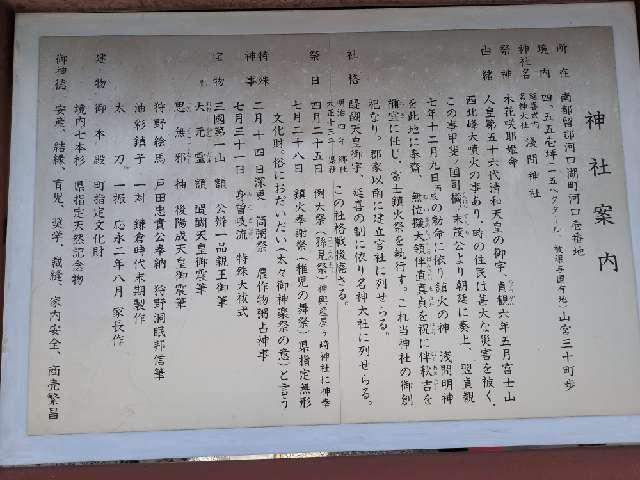 神社案内
所在 南都留郡河口湖町河口壱番地
境内 四、五五壱坪(一・五ヘクタール、被譲与国有地)山宮三十町歩
神社名 延喜式内 名神大社 浅間神社
祭神 木花咲耶姫命
由緒 人皇第五十六代清和天皇の御宇、貞観六年五月富士山
西北峰大噴火の事あり、時の住民は甚大な災害を被く、
この事甲斐ノ国司橘ノ末茂公より朝廷に奏上、翌貞観
七年十二月九日の勅命に依り鎮火の神、浅間明神
を此地に奉齋、無位擬大領伴直真貞を祝に伴秋吉を
禰宜に任じ、富士鎮火祭を執行す。これ当神社の御創
祀なり。郡家以南に建立官社に列せらる。
醍醐天皇御宇、延喜の制に依り名神大社に列せらる。
社格 明治四年 郷社 大正十三年 県社 この社格戦後廃さる。
祭日 四月二十五日 例大祭(孫見祭)神輿産屋ヶ崎神社に神幸
七月二十八日 鎮火奉謝祭(稚児の舞祭)県指定無形
文化財、俗におだいだい(太々御神楽祭の意)と言う
特殊神事 二月十四日深更 筒粥祭 農作物豊占神事
七月三十一日 身曽岐流 特殊大祓式
宝物 三国第一山 額 公辨一品親王御筆
大元霊 額 醍醐天皇御宸筆
思無邪 軸 後陽成天皇御宸筆
狩野絵馬 戸田忠貴公奉納 狩野洞眠邦信筆
油彩鎮子 一対 鎌倉時代末期製作
太刀 一振 応永二年八月 家長作
建物 御本殿 町指定文化財
境内七本杉 県指定天然記念物
御神徳 安産、結縁、育児、奨学、裁縫、家内安全、商売繁昌